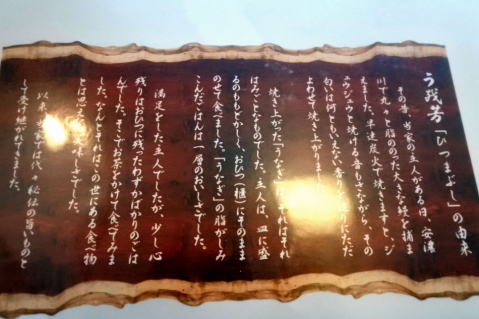 う残芳「ひつまぶし」の由来
その昔、当家の主人がある日、安濃
川で丸々と脂ののった大きな鰻を捕ま
えました。早速炭火で焼きますと、ジ
ュウジュウと焼ける音もさながら、その
匂いは何ともいえない香りであたりにただ
よわせて焼き上がりました。
焼き上がった「うなぎ」は、それはそれ
はみごとなものでした。主人は、皿に盛
るのももどかしく、おひつ(櫃)にそのまま
のせて食べました。「うなぎ」の脂がしみ
こんだごはんは一層のおいしさでした。
満足をした主人でしたが、少し心
残りはおひつに残ったわずかばかりのごは
んでした。そこでお茶をかけて食べてみま
した。なんとそれはこの世にある食べ物
とは思えぬ美味しさでした。
以来、当家では代々秘伝の旨いものと
して受け継がれてきました。